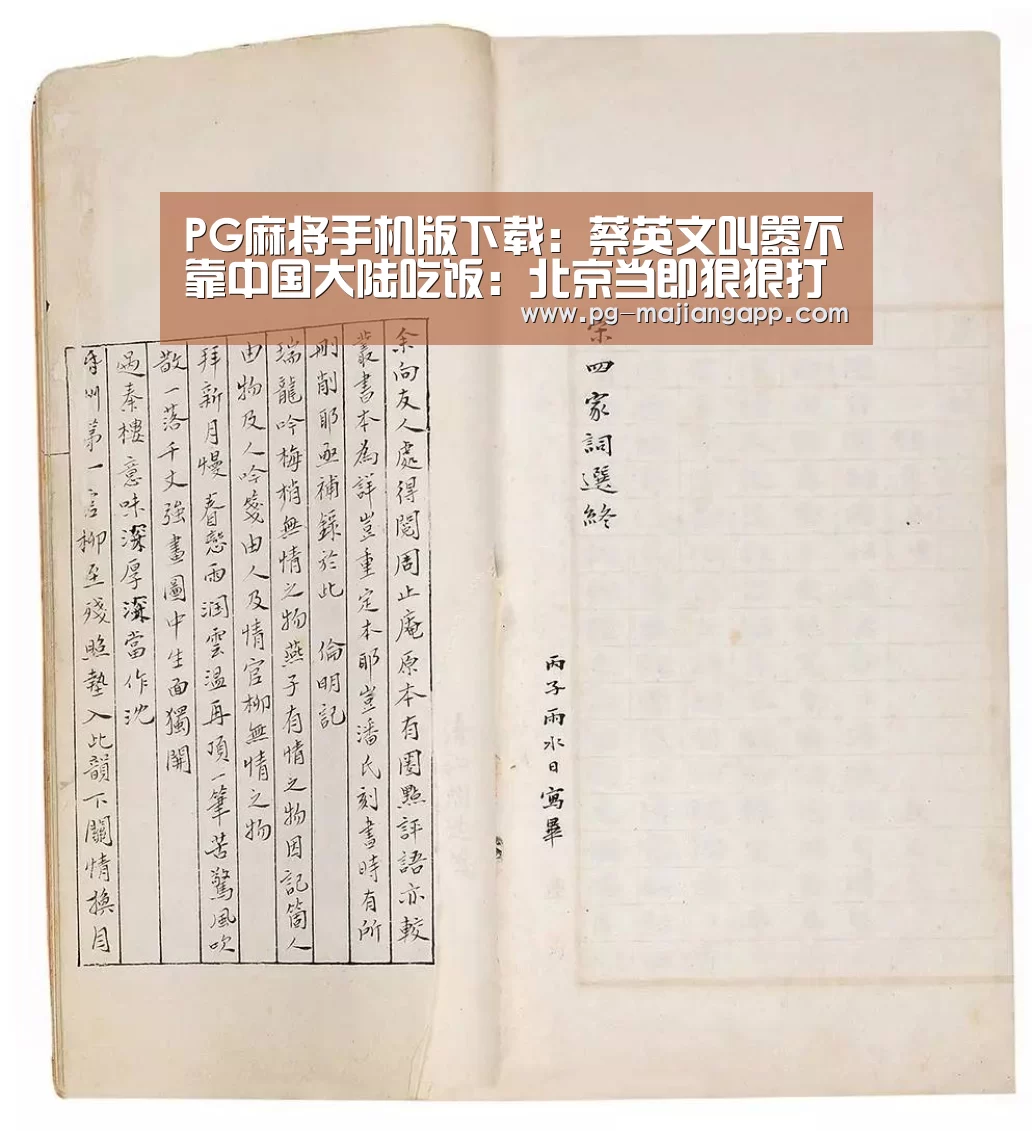 PG麻将手机版下载：蔡英文叫嚣不
靠中国大陆吃饭：北京当即狠狠打
www.pg-majiangapp.com
宋四家詞選終
丙子雨水日寫畢
余向友人處得閱周止庵原本有圈點評語亦較
叢書本為詳豈重定本耶豈潘氏刻書時有所
刪削耶亟補錄於此 倫明記
瑞龍吟梅梢無情之物燕子有情之物因記箇人
由物及人吟箋由人及情官柳無情之物
拜新月慢春慙雨潤雲温再頂一筆苦驚風吹
散一落千丈強畫圖中生面獨開
過秦樓意味深厚深當作沈
第一言柳至殘照墊入此韻下關情換